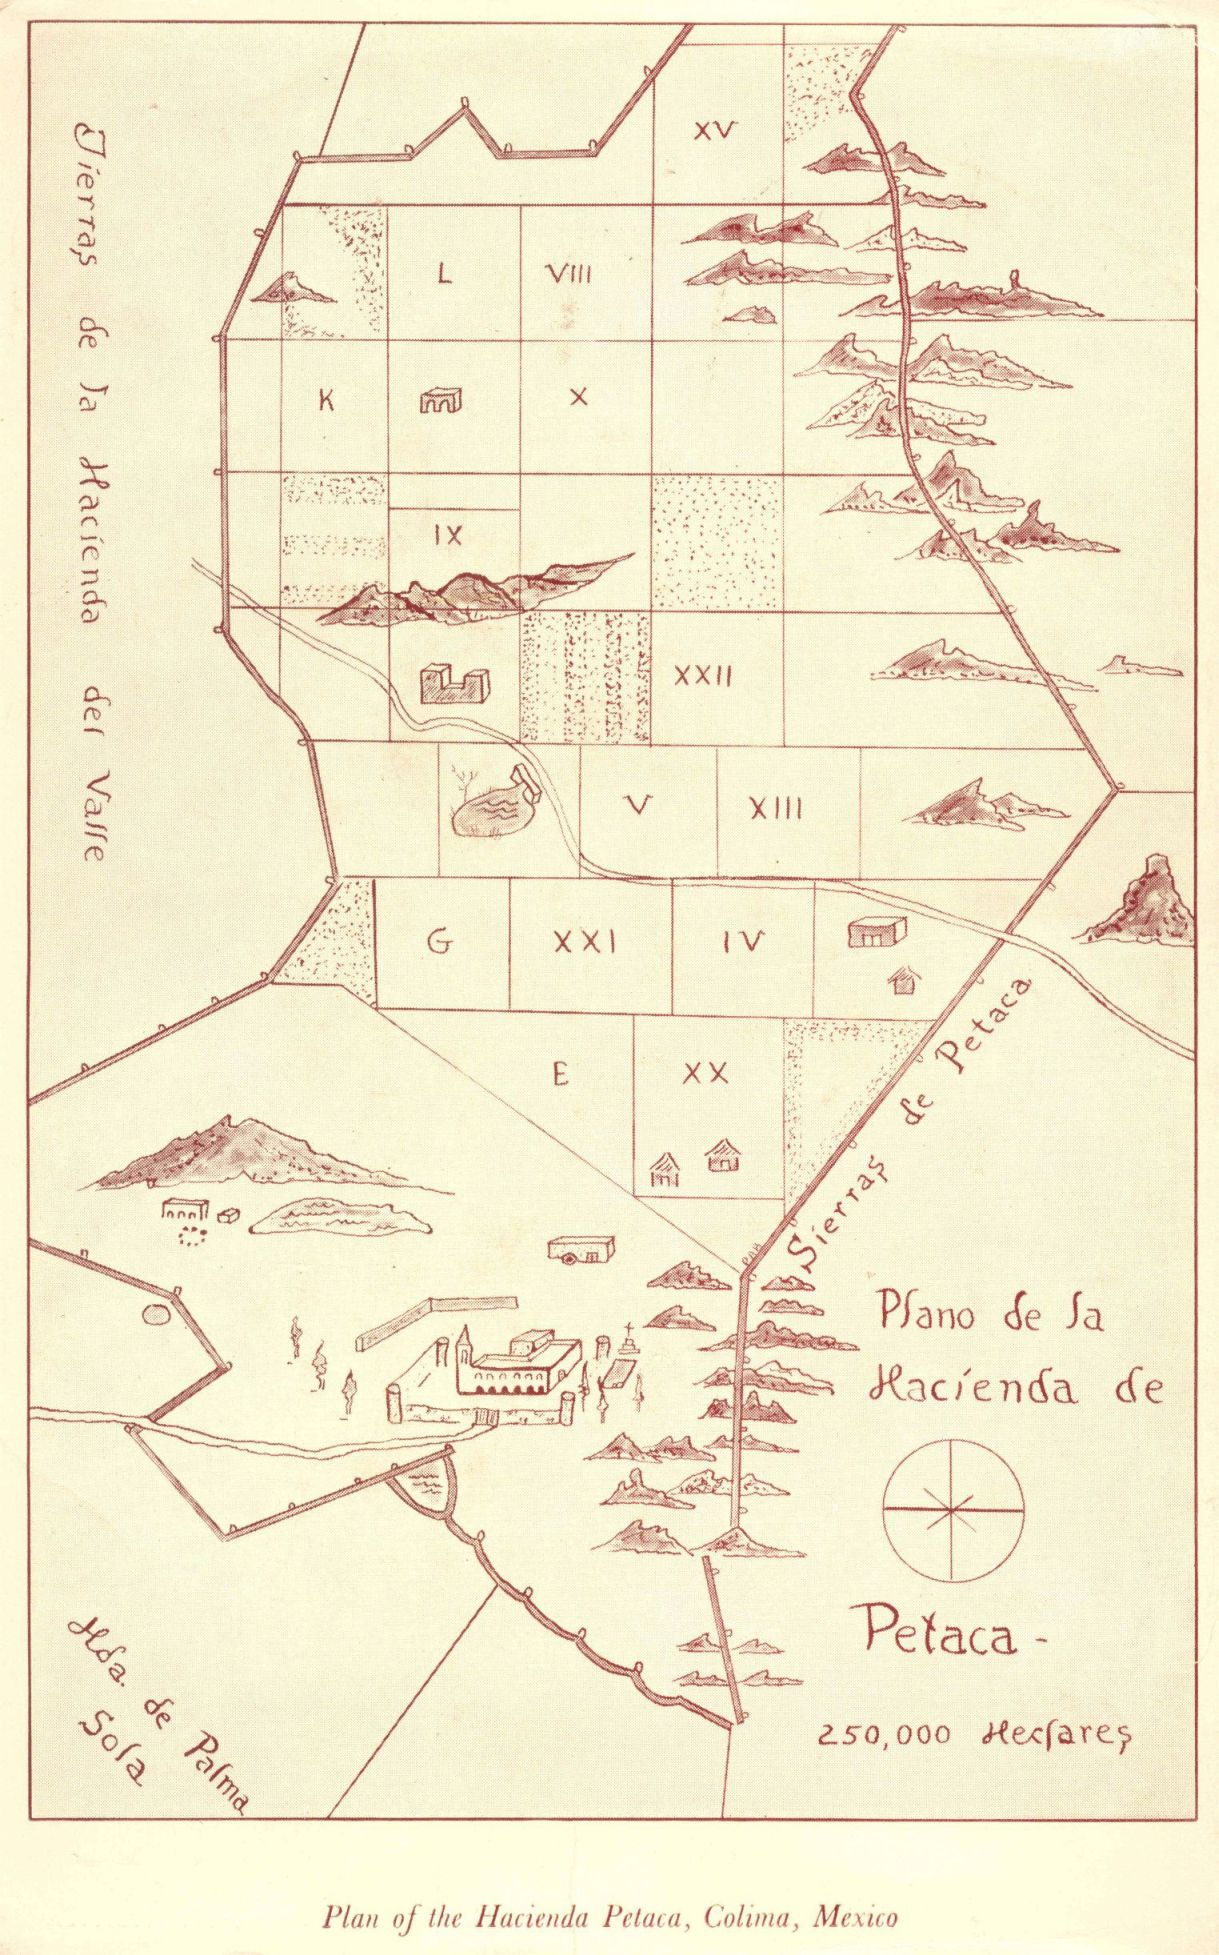 Tierras de la Hacienda del Valle
XV
L
VIII
K
X
IX
XXII
V
XIII
G
XXI
IV
E
XX
Sierras de Petaca
Plano de la
Hacienda de
Petaca -
250,000 Hectares
Hda. de Palma
Sola
Plan of the Hacienda Petaca, Colima, Mexico